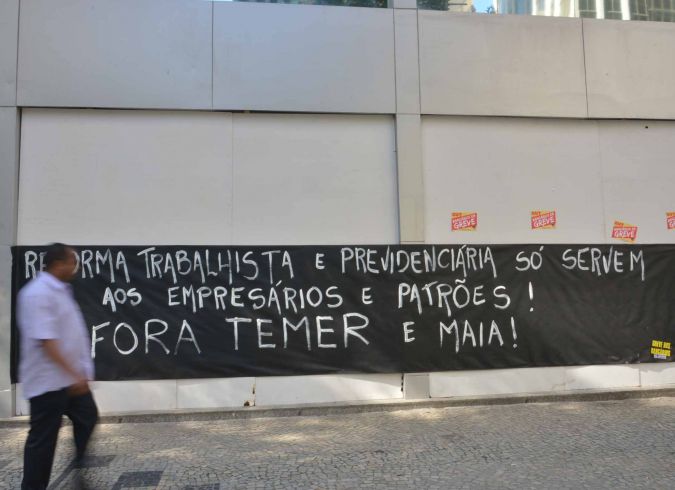 REFORMA TRABALHISTA E PREVIDENCIÁRIA SÓ SERVEM
AOS EMPRESÁRIOS E PATRÕES!
FORA TEMER E MAIA!
GREVE
GREVE
GREVE
GREVE DOS
BANCÁRIOS